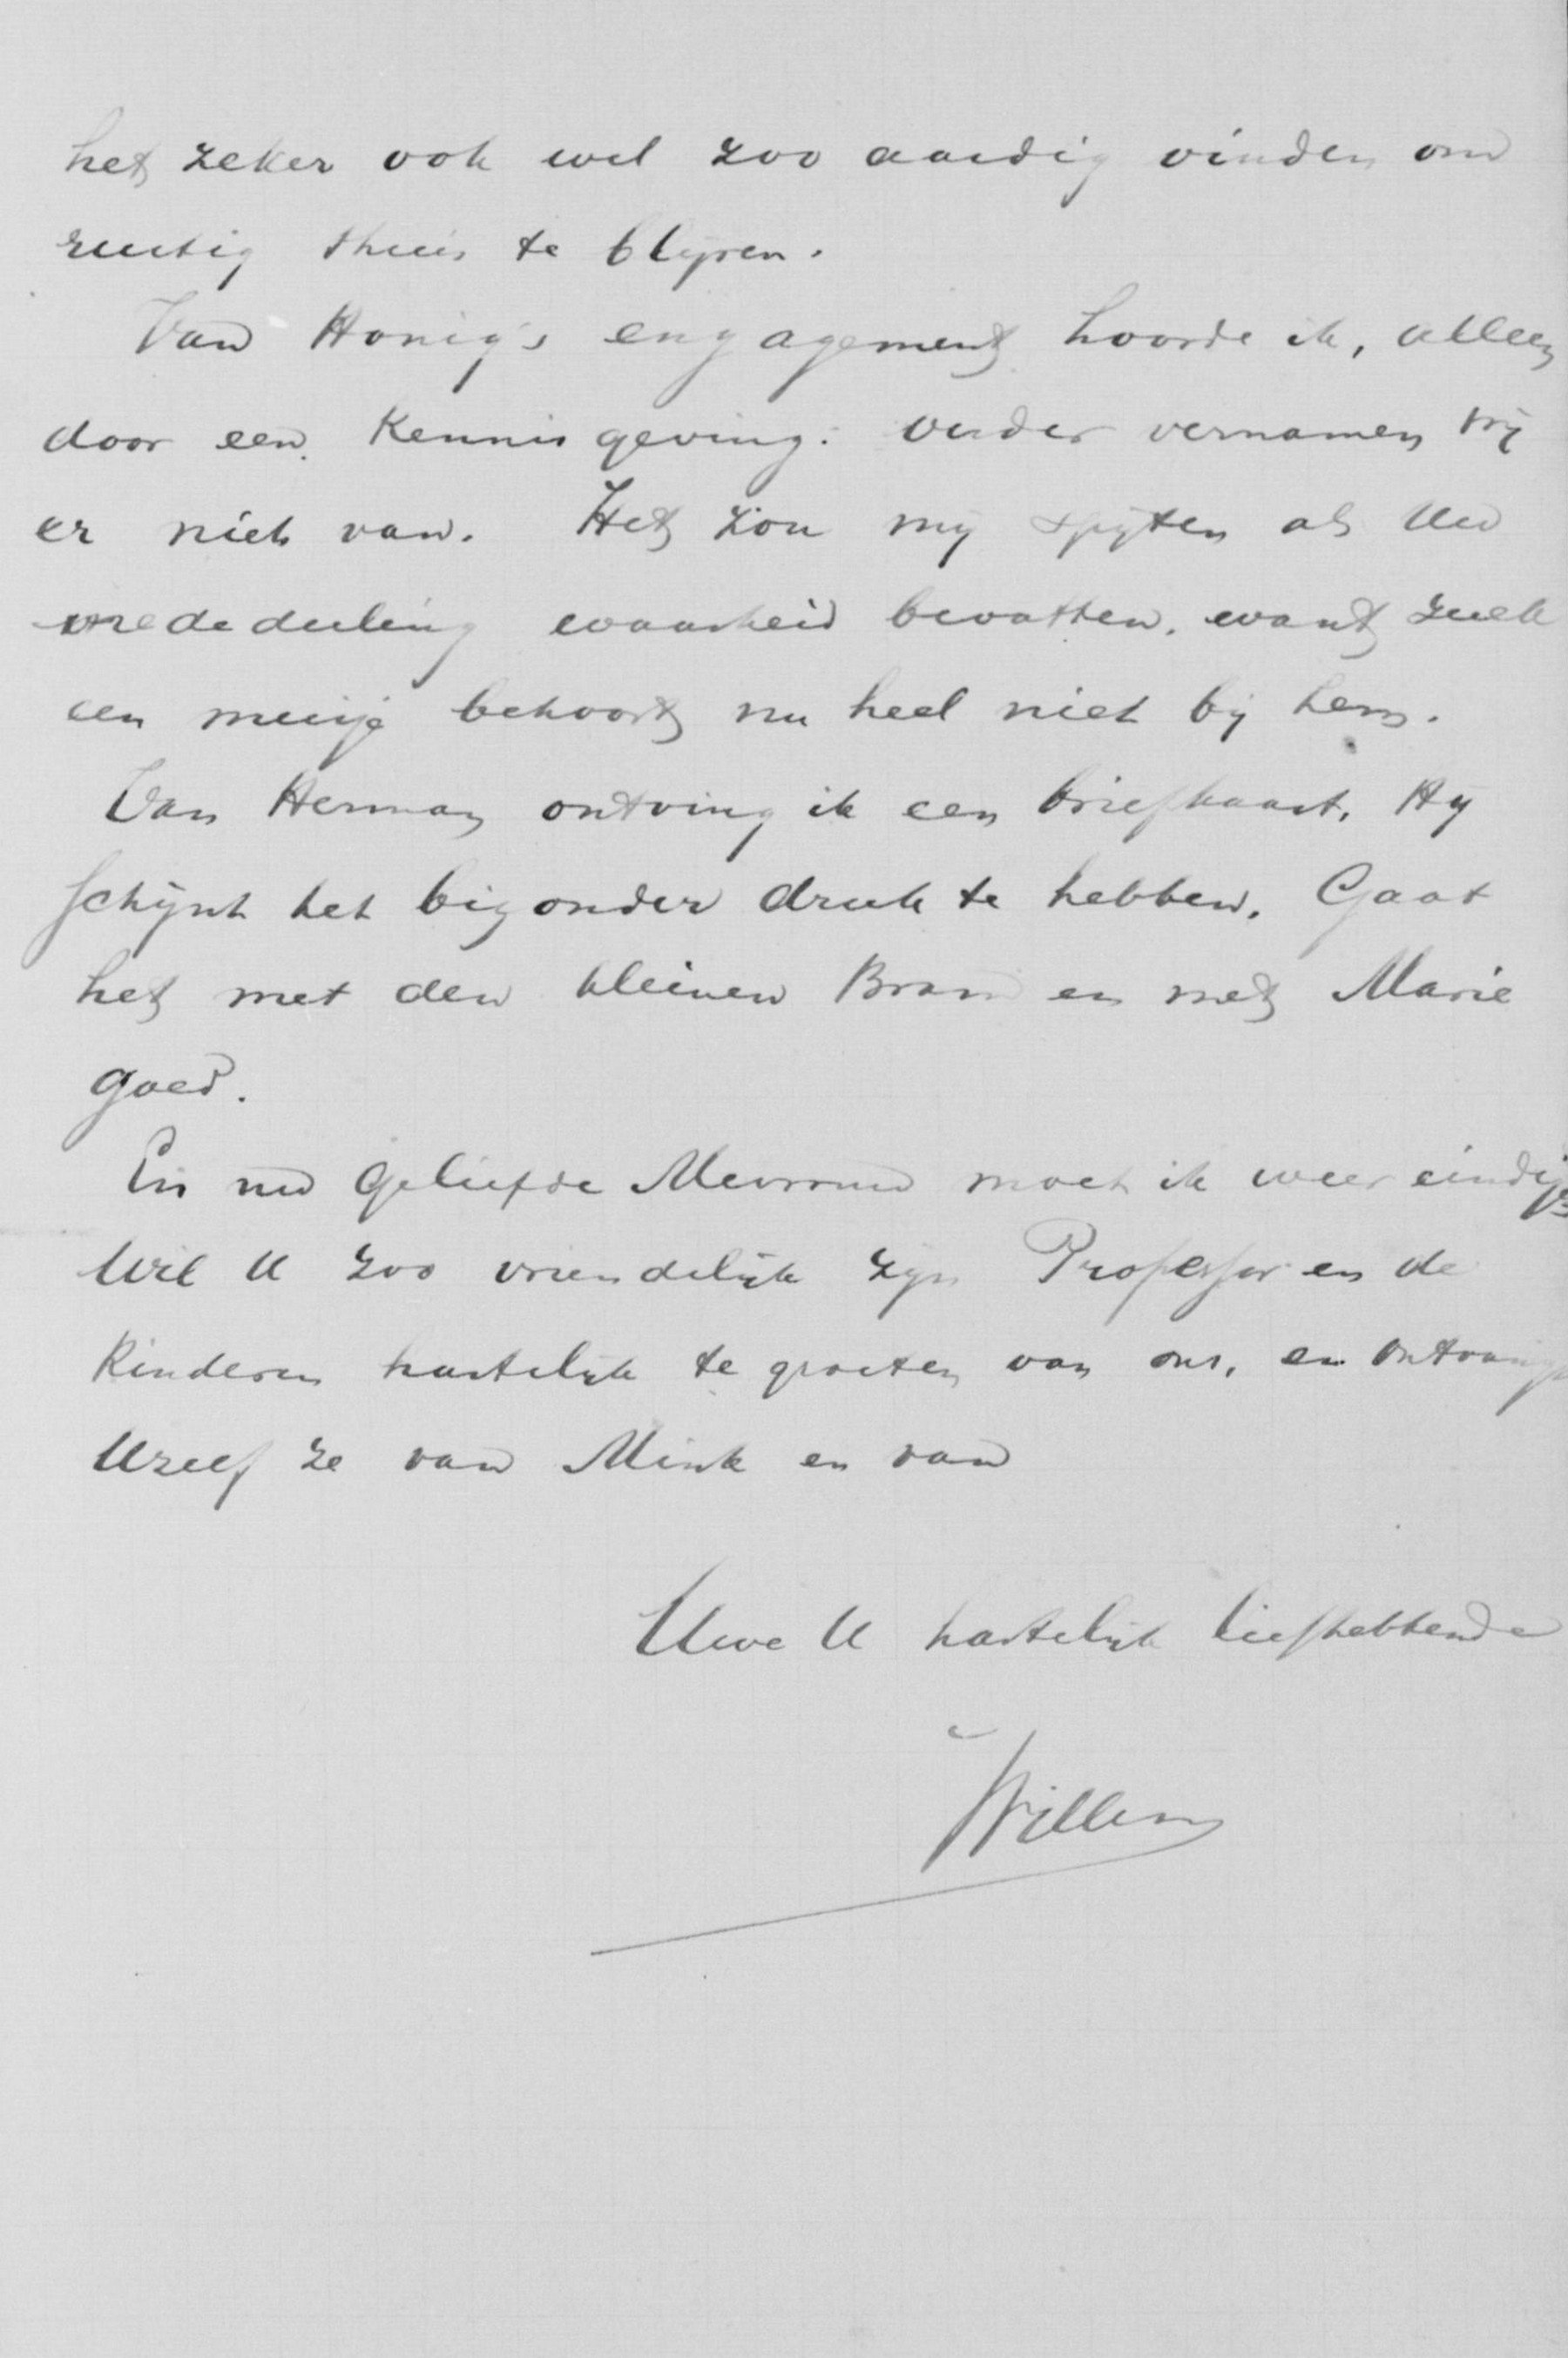 het zeker ook wel zoo aardig vinden om
rustig thuis te blijven.
Van Honig's engagement hoorde ik, alleen
door een kennisgeving. verder vernamen wij
er niets van. Het zou mij spijten als Uw
mededeeling waarheid bevatten, want zulk
een meisje behoort nu heel niet bij hem.
Van Herman ontving ik een briefkaart. Hij
schijnt het bizonder druk te hebben. Gaat
het met den kleinen Bram en met Marie
goed.
En nu geliefde Mevrouw moet ik weer eindigen
Wil U zoo vriendelijk zijn Professor en de
Kinderen hartelijk te groeten van ons, en ontvang
Uzelf ze van Mink en van
Uwe U hartelijk liefhebbende
Willem